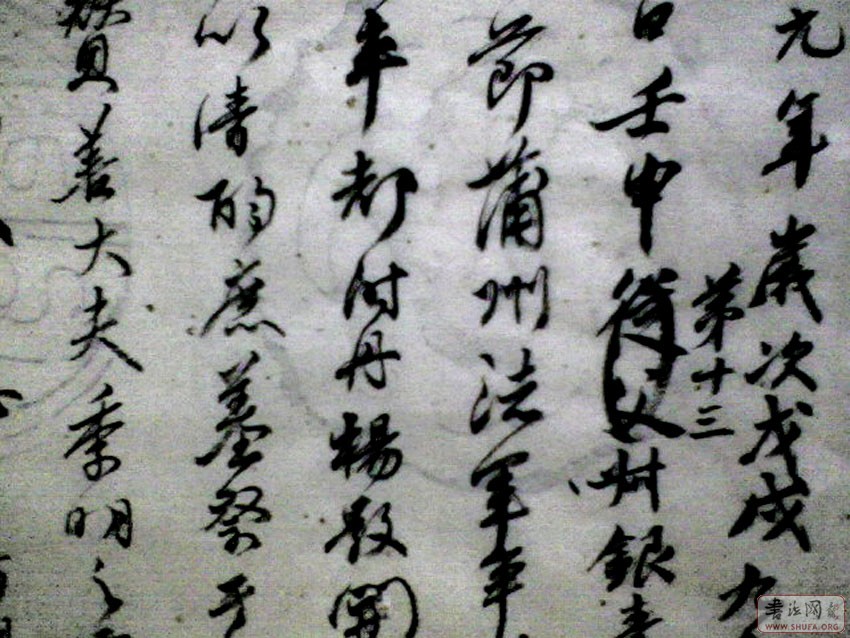 元年歲次戊戌九
第十三
日壬申從父叔銀青
節蒲州諸軍事
車都尉丹楊縣開
以清酌庶羞祭于
贊善大夫季明之
書法网
WWW.SHUFA.ORG